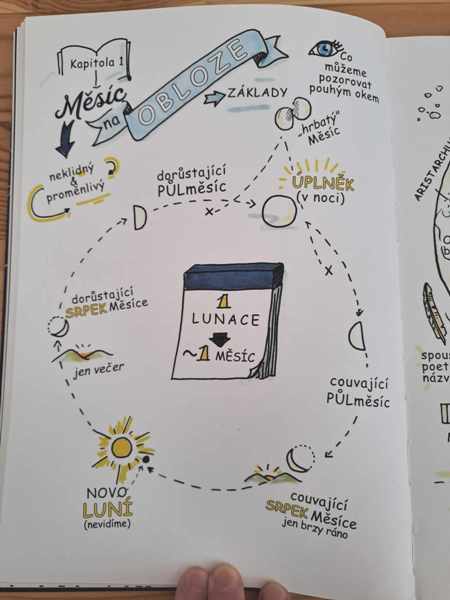 Kapitola 1
Měsíc
na
OBLOZE
ZÁKLADY
Co
můžeme
pozorovat
pouhým okem
neklidný
&
proměnlivý
„hrbatý"
Měsíc
dorůstající
PŮLměsíc
ÚPLNĚK
(v noci)
dorůstající
SRPEK Měsíce
jen večer
1
LUNACE
~1 MĚSÍC
couvající
PŮLměsíc
NOVO
LUNÍ
(nevidíme)
couvající
SRPEK Měsíce
jen brzy ráno